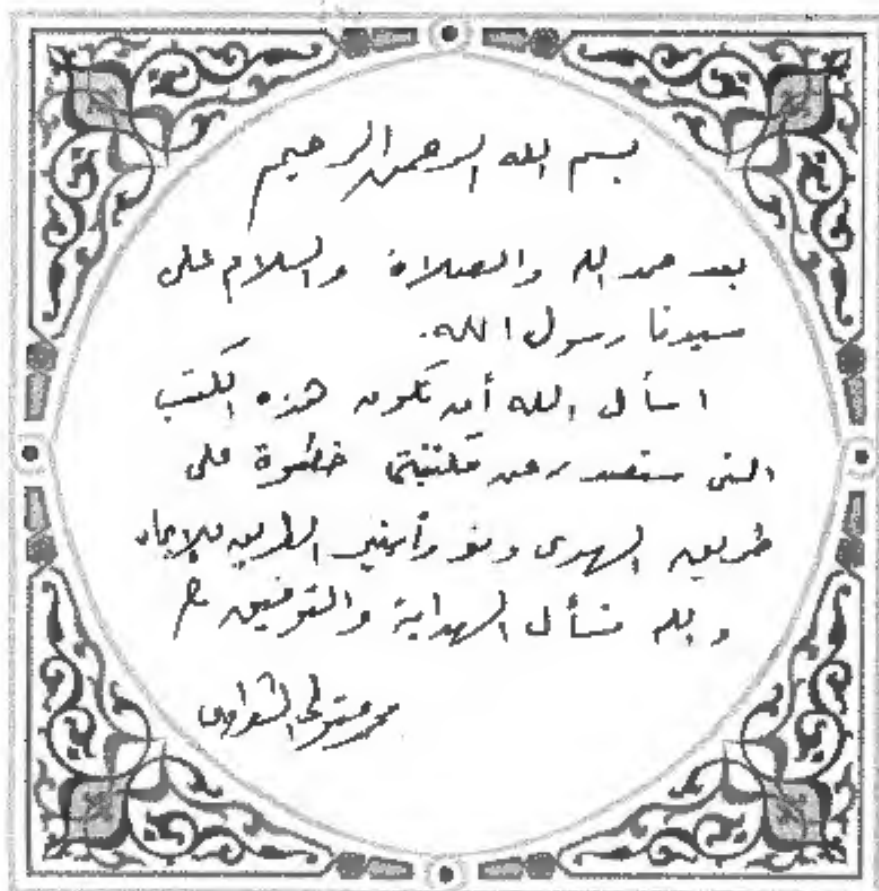 بسم الله الرحمن الرحيم
بعد حمد الله والصلاة والسلام على
سيدنا رسول الله.
اسأل الله أن تكون هذه الكتب
التي ستصدر عن مكتبتي خطوة على
طريق الهدى ونوراً ينير الطريق للإيمان
والله نسأل الهداية والتوفيق
محمد متولي الشعراوي